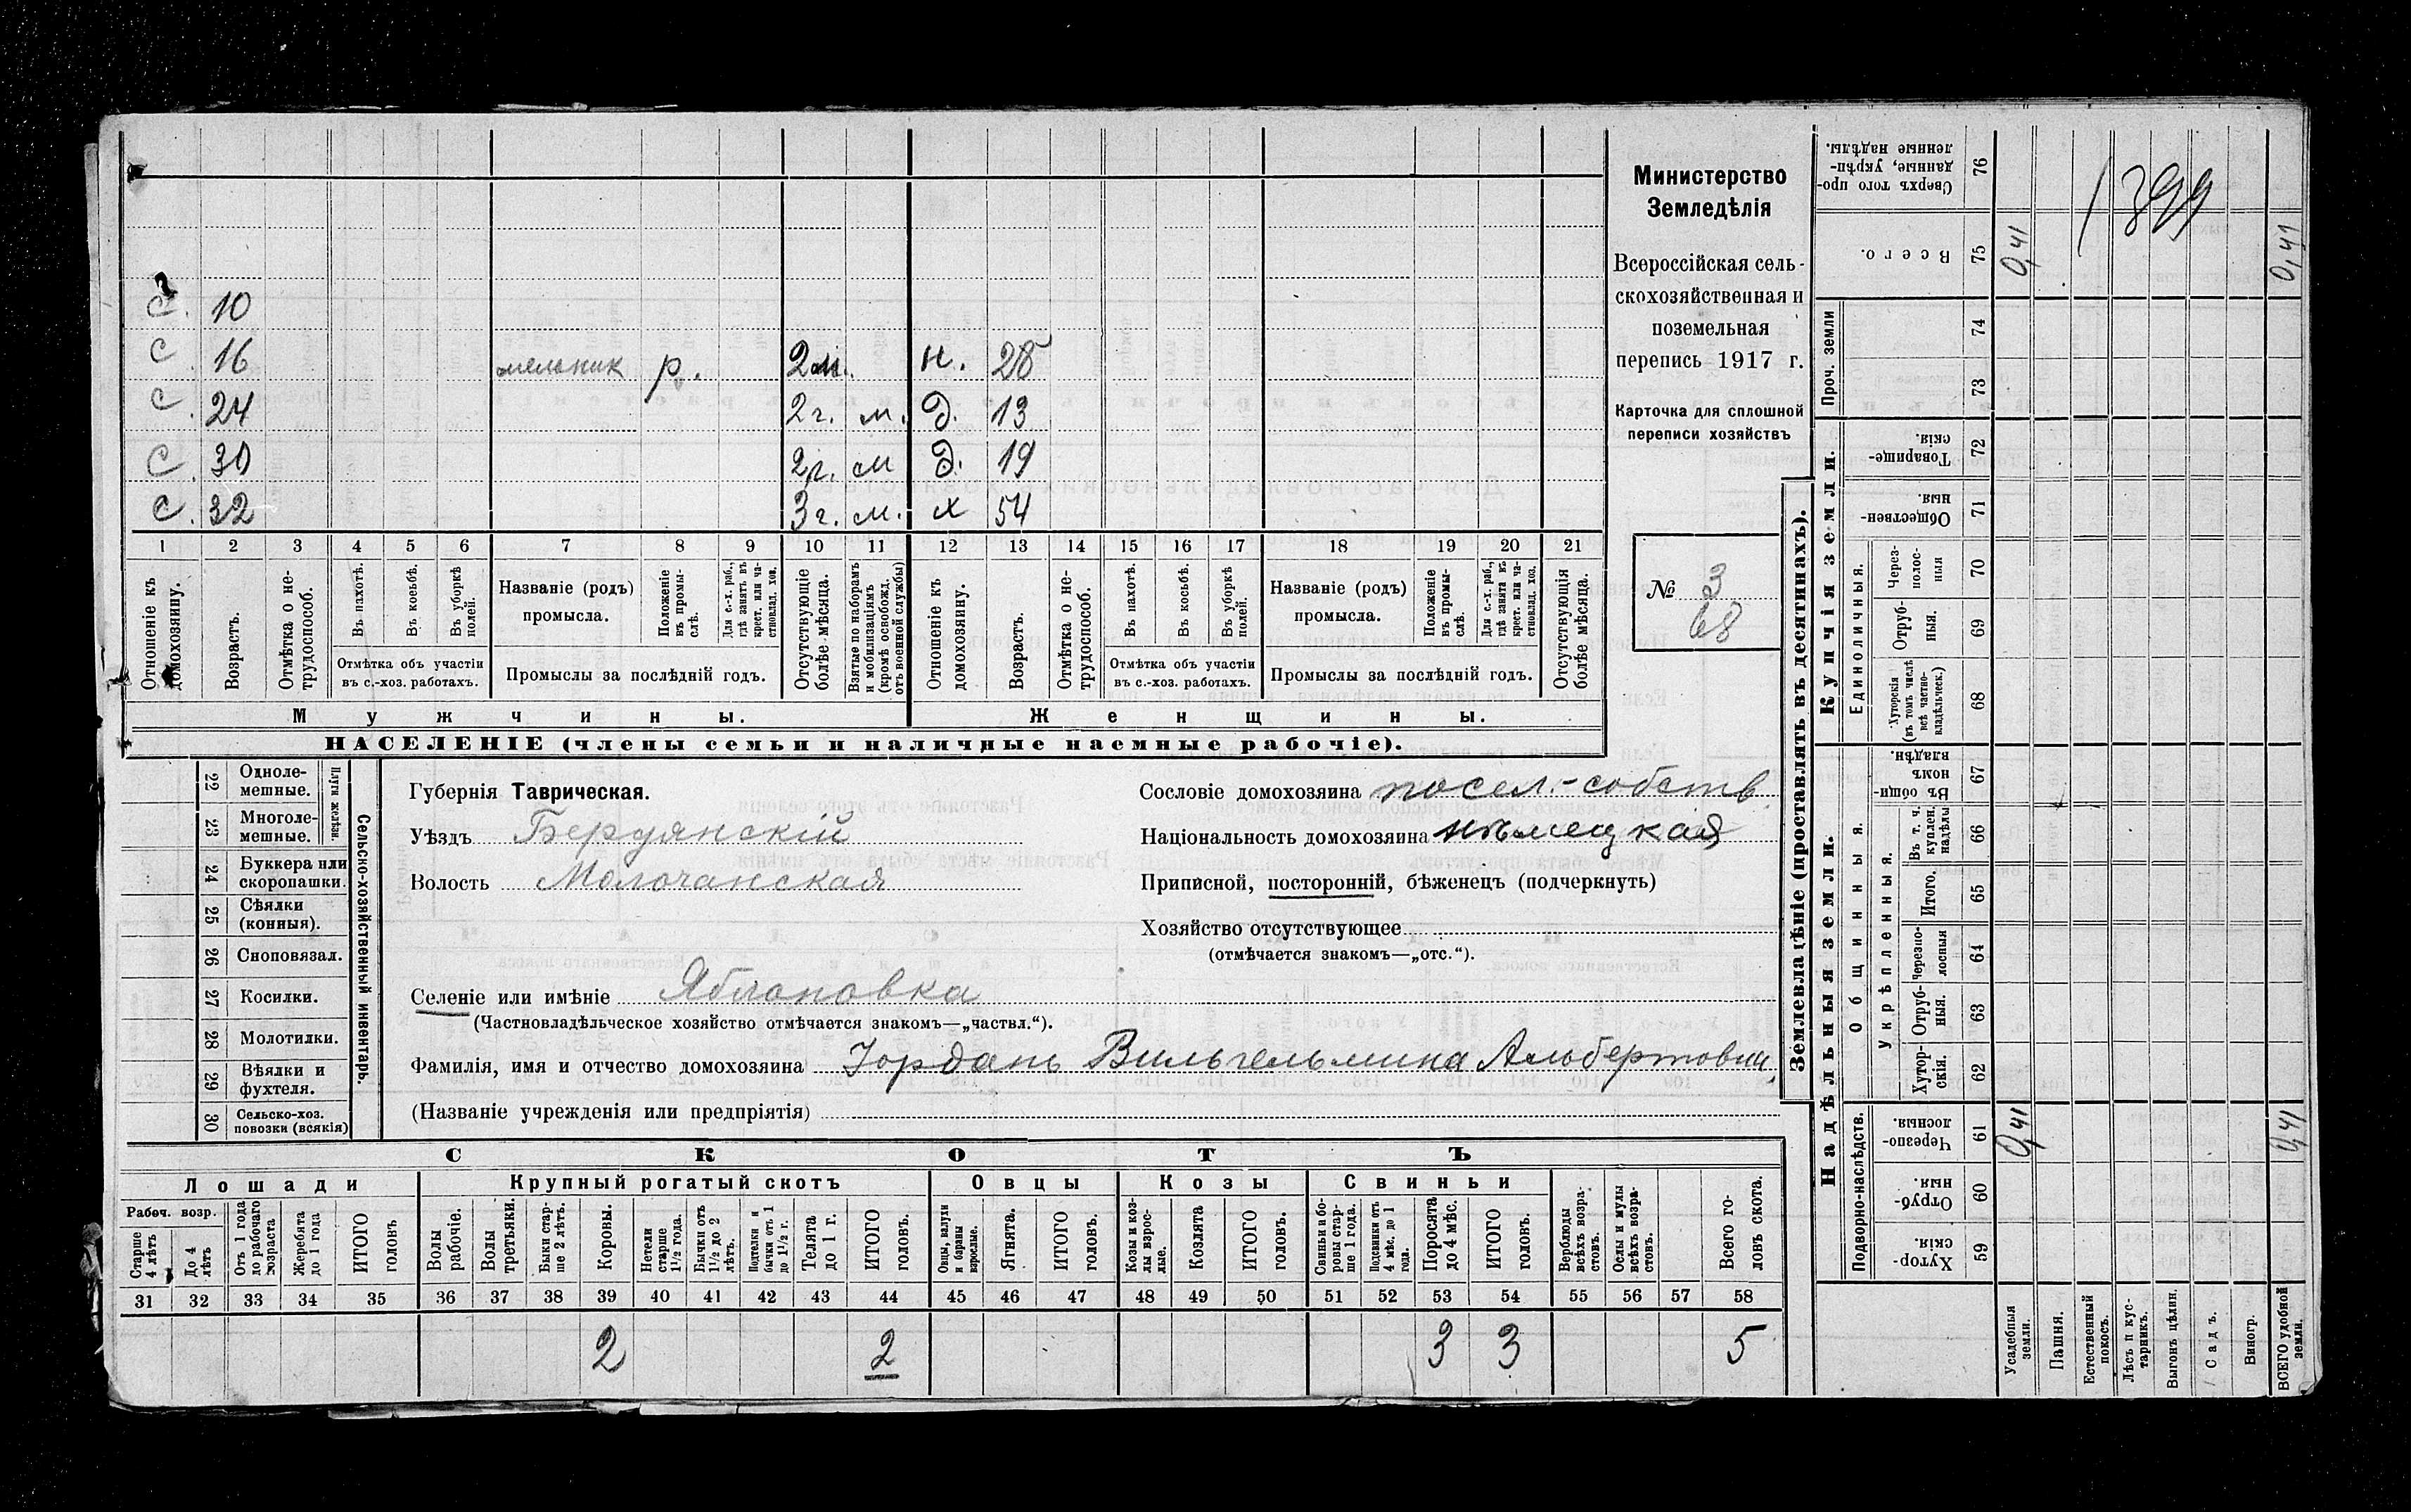 Министерство
Земледѣлія
Всероссійская сель-
скохозяйственная и
поземельная
перепись 1917 г.
Карточка для сплошной
переписи хозяйствъ
№ 3
68
1899
С. 10
С. 16 мельник р. 2 м. н. 28
С. 24 2 г. м. д. 13
С. 30 2 г. м д. 19
С. 32 3 г. м. х 54
1 2 3 4 5 6 7 8 9 10 11 12 13 14 15 16 17 18 19 20 21
Отношеніе къ домохозяину.
Возрастъ.
Отмѣтка о не-трудоспособ.
Въ пахотѣ.
Въ косьбѣ.
Въ уборкѣ полей.
Отмѣтка объ участіи
въ с.-хоз. работахъ.
Названіе (родъ)
промысла.
Положеніе въ промы-слѣ.
Для с.-х. раб., гдѣ занятъ въ крест. или ча-стновлад. хоз.
Промыслы за послѣдній годъ.
Отсутствующіе болѣе мѣсяца.
Взятые по наборамъ и мобилизаціямъ (кромѣ освобожд. отъ военной службы)
Отношеніе къ домохозяину.
Возрастъ.
Отмѣтка о не-трудоспособ.
Въ пахотѣ.
Въ косьбѣ.
Въ уборкѣ полей.
Отмѣтка объ участіи
въ с.-хоз. работахъ.
Названіе (родъ)
промысла.
Положеніе въ промы-слѣ.
Для с.-х. раб., гдѣ занята въ крест. или ча-стновлад. хоз.
Промыслы за послѣдній годъ.
Отсутствующія болѣе мѣсяца.
Мужчины. Женщины.
НАСЕЛЕНІЕ (члены семьи и наличные наемные рабочіе).
Сельско-хозяйственный инвентарь.
Плуги желѣзн.
22 Однолемешные.
23 Многолемешные.
24 Буккера или скоропашки.
25 Сѣялки (конныя).
26 Сноповязал.
27 Косилки.
28 Молотилки.
29 Вѣялки и фухтеля.
30 Сельско-хоз. повозки (всякія)
Губернія Таврическая.
Уѣздъ Бердянскій
Волость Молочанская
Сословіе домохозяина посел.-собств.
Національность домохозяина нѣмецкая
Приписной, посторонній, бѣженецъ (подчеркнуть)
Хозяйство отсутствующее
(отмѣчается знакомъ—„отс.“).
Селеніе или имѣніе Яблоновка
(Частновладѣльческое хозяйство отмѣчается знакомъ—„частвл.“).
Фамилія, имя и отчество домохозяина Іорданъ Вильгельмина Альбертовна
(Названіе учрежденія или предпріятія)
СКОТЪ
Лошади Крупный рогатый скотъ Овцы Козы Свиньи
Рабоч. возр.
Старше 4 лѣтъ
До 4 лѣтъ
Отъ 1 года до рабочаго возраста
Жеребята до 1 года
ИТОГО головъ
Волы рабочіе.
Волы третьяки.
Быки стар-ше 2 лѣтъ.
Коровы.
Нетели старше 1½ года.
Бычки отъ 1½ до 2 лѣтъ.
Подтелки и бычки отъ 1 до 1½ г.
Телята до 1 г.
ИТОГО головъ.
Овцы, валухи и бараны взрослые.
Ягнята.
ИТОГО головъ.
Козы и коз-лы взрос-лые.
Козлята
ИТОГО головъ.
Свиньи и бо-ровы стар-ше 1 года.
Подсвинки отъ 4 мѣс. до 1 года.
Поросята до 4 мѣс.
ИТОГО головъ.
Верблюды всѣхъ возра-стовъ.
Ослы и мулы всѣхъ возра-стовъ.
Всего го-ловъ скота.
31 32 33 34 35 36 37 38 39 40 41 42 43 44 45 46 47 48 49 50 51 52 53 54 55 56 57 58
2 2 3 3 5
Землевладѣніе (проставлять въ десятинахъ).
Надѣльныя земли. Купчія земли. Проч. земли
Подворно-наслѣдств.
Общинныя.
Укрѣпленныя.
Единоличныя.
59 Хутор-скія.
60 Отруб-ныя.
61 Черезпо-лосныя. 0,41 0,41
62 Хутор-скія.
63 Отруб-ныя.
64 Черезпо-лосныя
65 Итого.
66 Въ т. ч. куплен. надѣлы
67 Въ общин-номъ владѣн.
68 Хуторскія (въ томъ числѣ всѣ частно-владѣльческ.)
69 Отруб-ныя.
70 Через-полос-ныя
71 Обществен-ныя.
72 Товарище-скія.
73
74
75 Всего. 0,41 0,41
76 Сверхъ того про-данные, укрѣп-ленные надѣлы.
Усадебныя земли.
Пашня.
Естественный покосъ.
Лѣсъ и кус-тарникъ.
Выгонъ цѣлин.
Садъ.
Виногр.
ВСЕГО удобной земли.